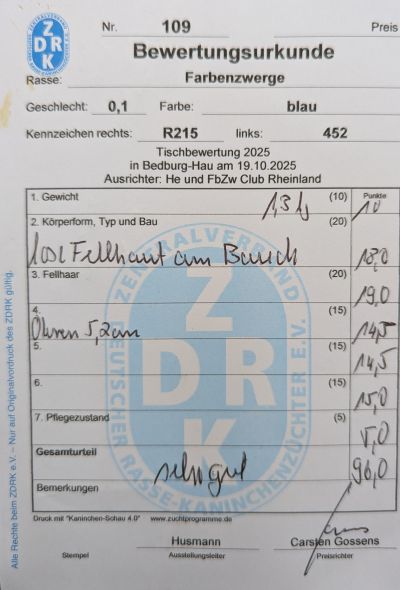 ZDRK
Nr. 109 Preis
Bewertungsurkunde
Rasse: Farbenzwerge
Geschlecht: 0,1 Farbe: blau
Kennzeichen rechts: R215 links: 452
Tischbewertung 2025
in Bedburg-Hau am 19.10.2025
Ausrichter: He und FbZw Club Rheinland
1. Gewicht 1,3 kg (10) Punkte 10
2. Körperform, Typ und Bau (20)
lose Fellhaut am Bauch 18,0
3. Fellhaar (20) 19,0
4. (15)
Ohren 5,2cm 14,5
5. (15) 14,5
6. (15) 15,0
7. Pflegezustand (5) 5,0
Gesamturteil sehr gut 96,0
Bemerkungen
ZENTRALVERBAND DEUTSCHER RASSE-KANINCHENZÜCHTER E.V.
ZDRK
Druck mit "Kaninchen-Schau 4.0" www.zuchtprogramme.de
Husmann Carsten Gossens
Stempel Ausstellungsleiter Preisrichter
Alle Rechte beim ZDRK e.V. – Nur auf Originalvordruck des ZDRK gültig.